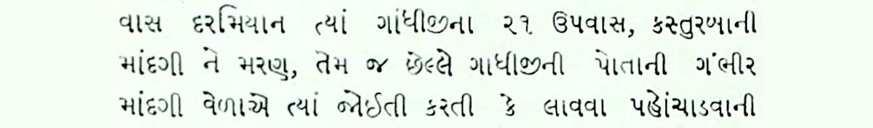 વાસ દરમિયાન ત્યાં ગાંધીજીના ૨૧ ઉપવાસ, કસ્તુરબાની
માંદગી ને મરણ, તેમ જ છેલ્લે ગાધીજીની પોતાની ગંભીર
માંદગી વેળાએ ત્યાં જોઈતી કરતી કે લાવવા પહોંચાડવાની